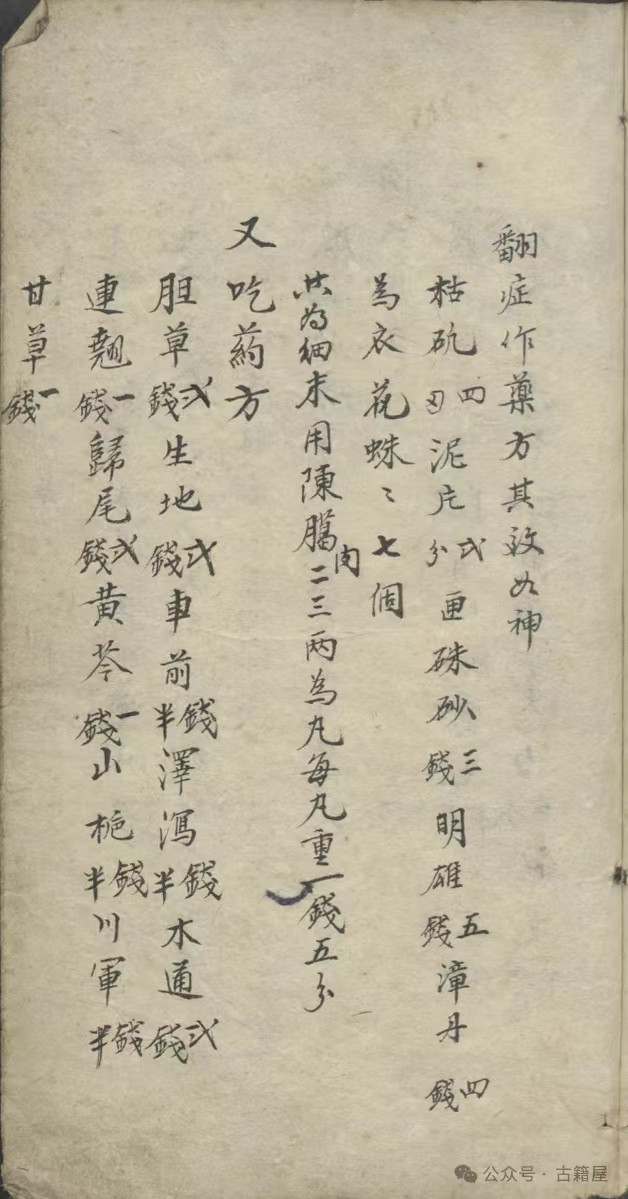 翻症作藥方其效如神
枯矾四 泥片弍分 硃砂三錢 明雄五錢 漳丹四錢
為衣花蛛〻七個
共为細末用陳臈肉二三两為丸每丸重一錢五分
又吃葯方
胆草弍錢 生地弍錢 車前錢半 澤瀉錢半 木通弍錢
連翹一錢 歸尾弍錢 黄芩一錢 山栀錢半 川軍錢半
甘草一錢
公众号·古籍屋